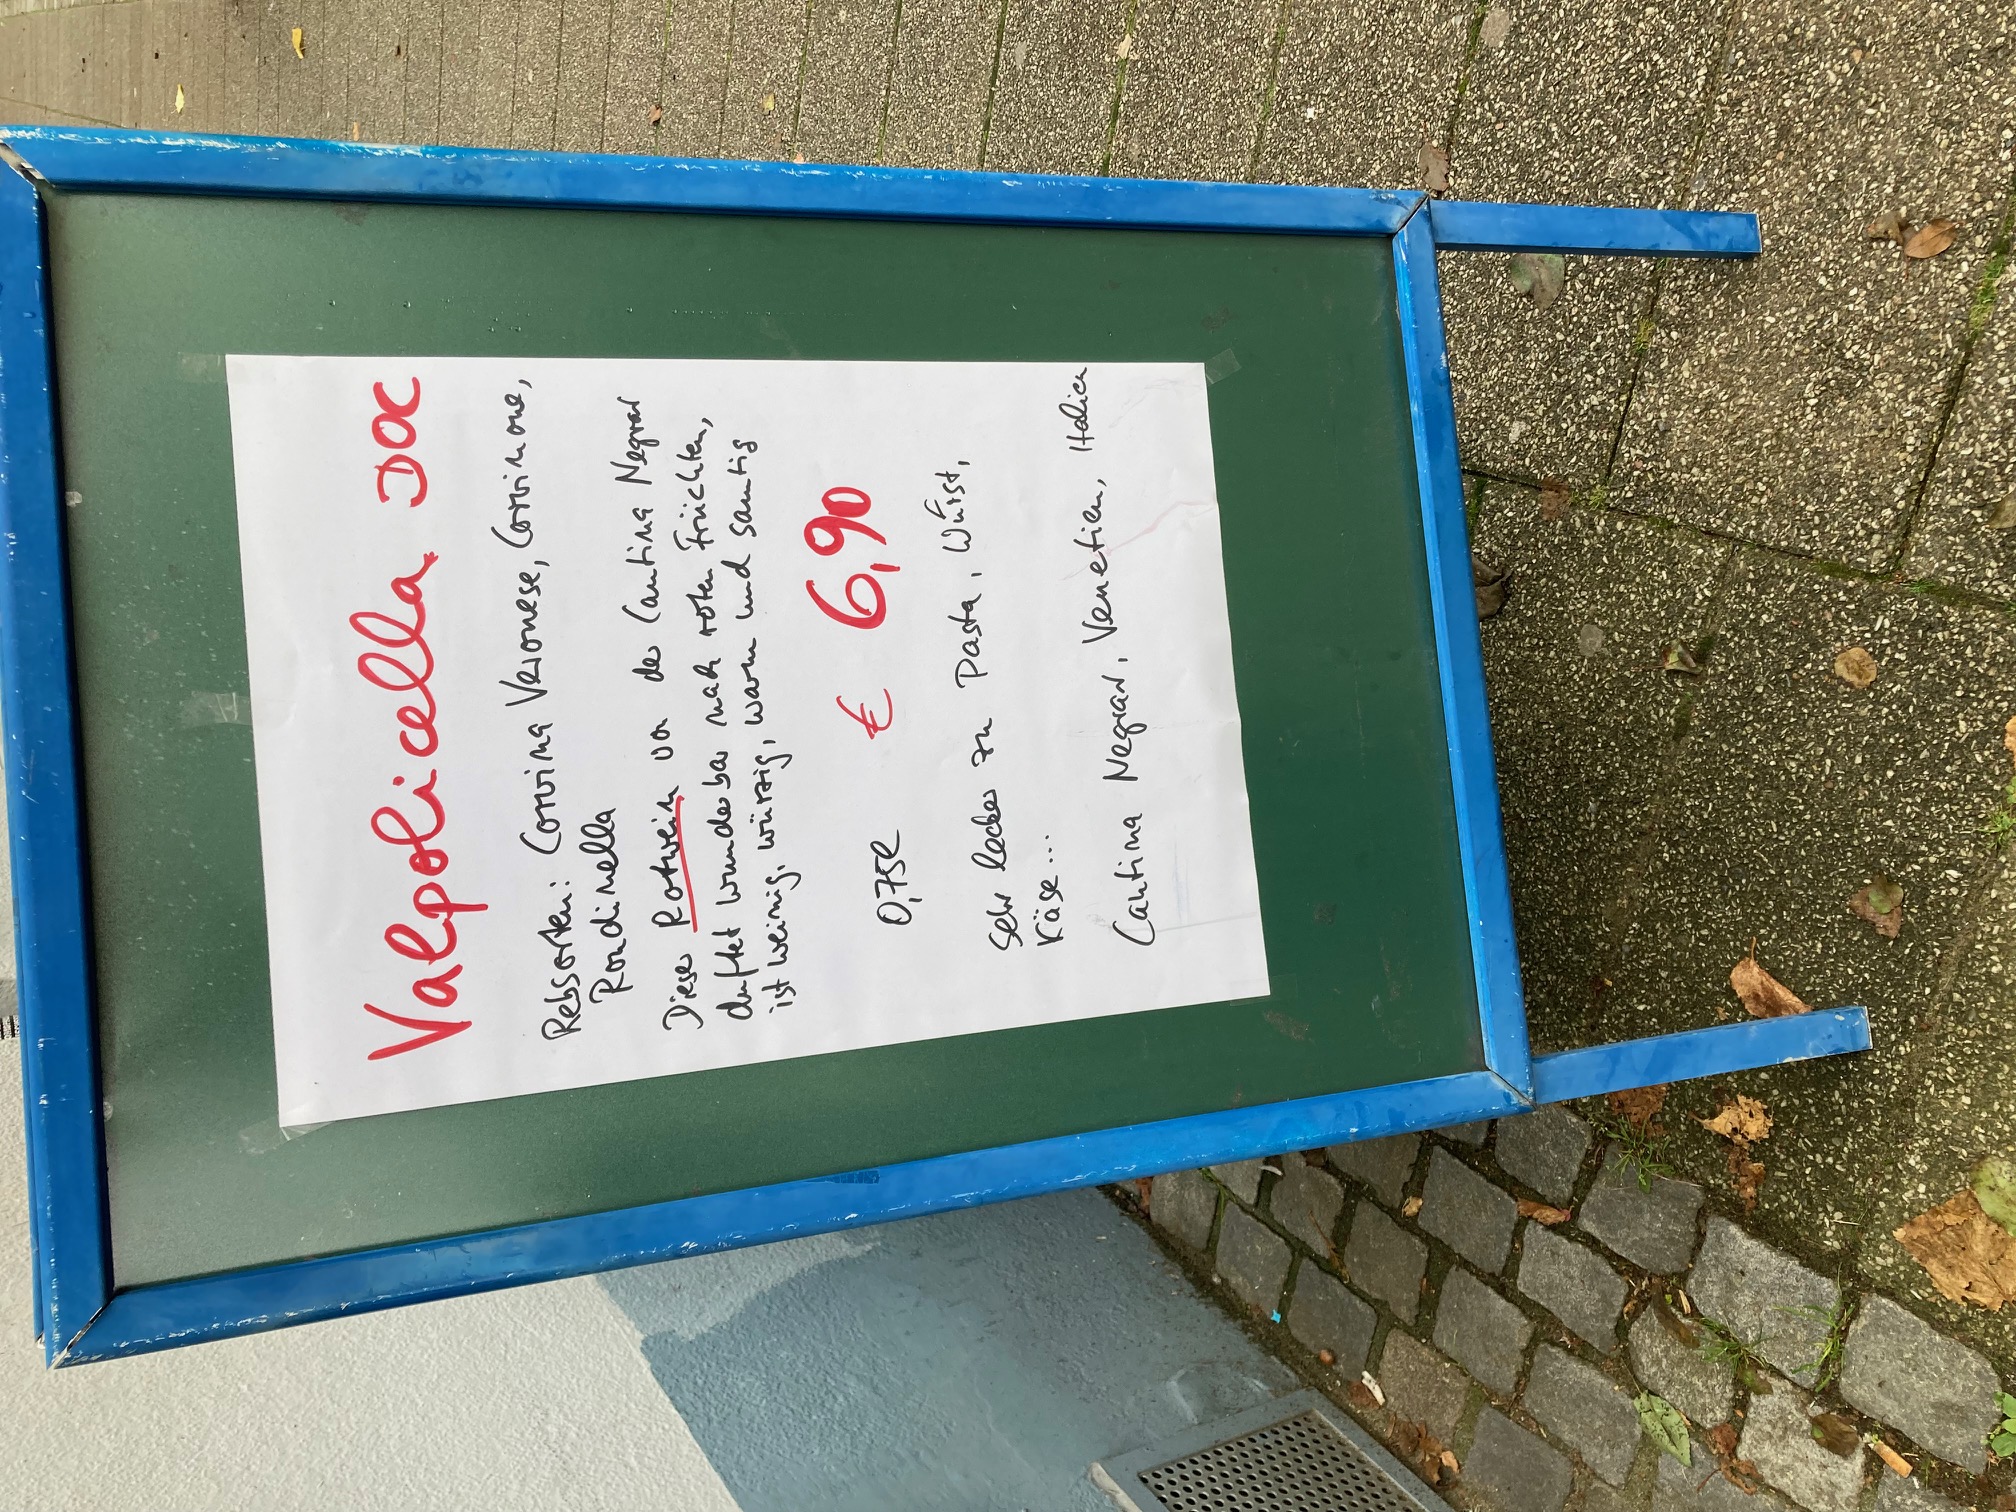 Valpolicella DOC
Rebsorten: Corvina Veronese, Corvinone,
Rondinella
Dieser Rotwein von der Cantina Negrar
duftet wunderbar nach roten Früchten,
ist weinig, würzig, warm und samtig
0,75l € 6,90
Sehr lecker zu Pasta, Wurst,
Käse...
Cantina Negrar, Venetien, Italien